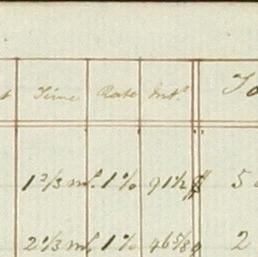 t Time Rate Int. To
1 2/3 m. 1% 91 1/2 $ 5
2 1/3 m. 1% 46 5/8 2